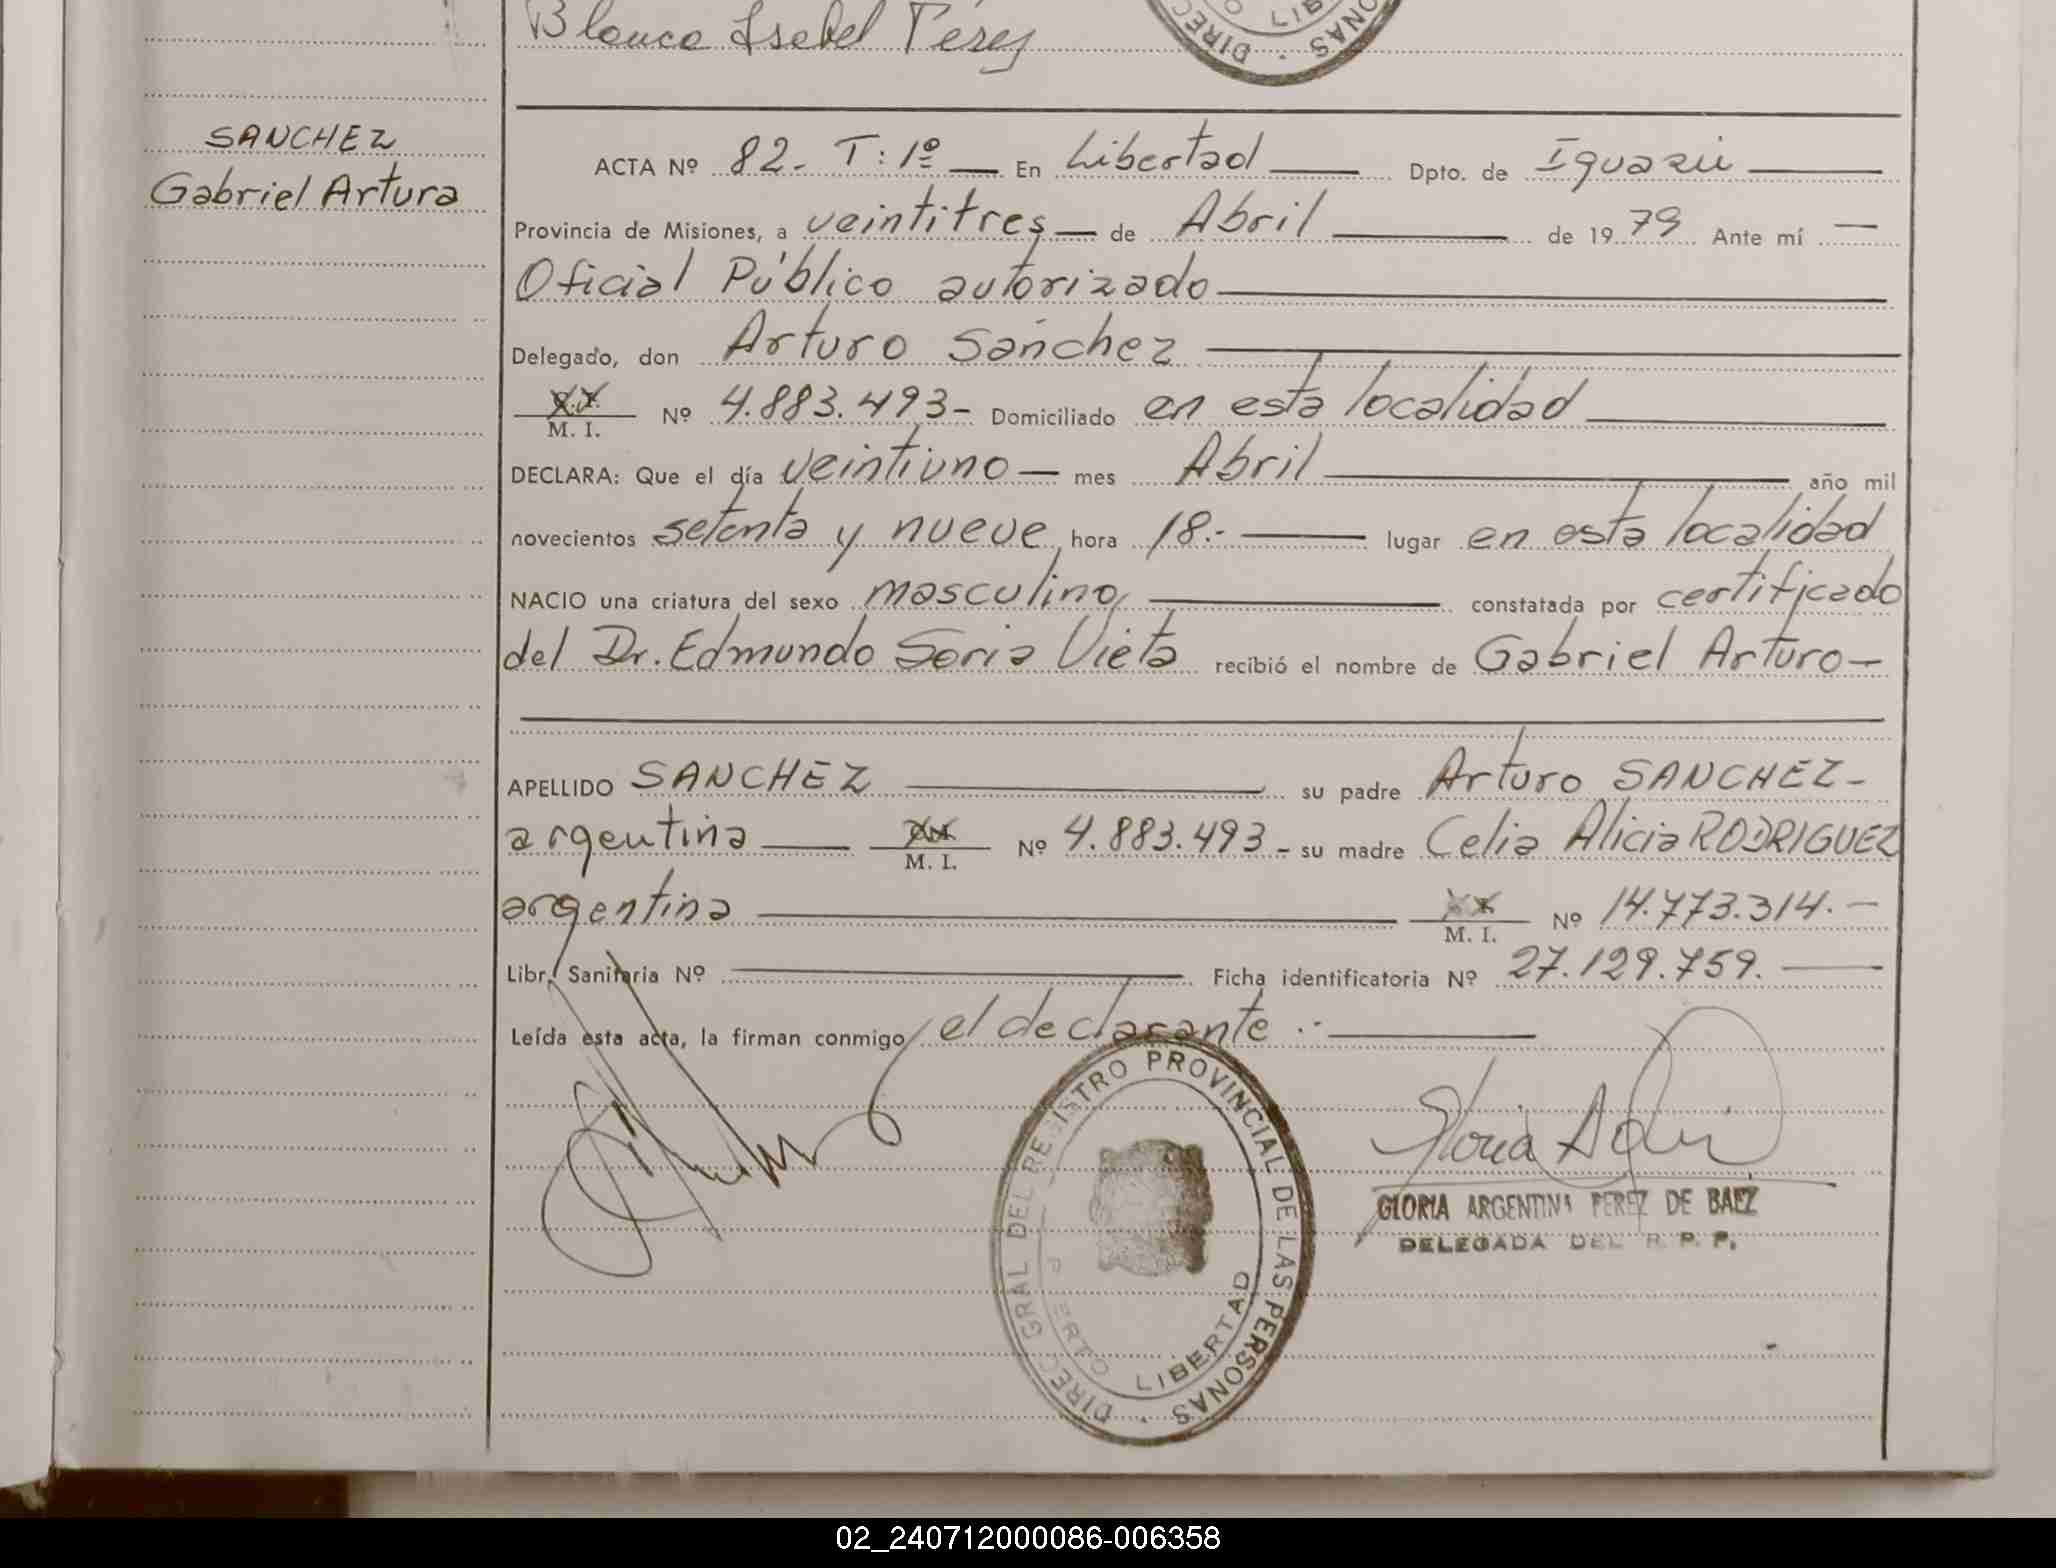 Blanca Isabel Pérez
DIREC
LIB
NAS
SANCHEZ
Gabriel Arturo
ACTA Nº 82.- T: 1º — En Libertad — Dpto. de Iguazú —
Provincia de Misiones, a veintitres — de Abril — de 19 79 Ante mí —
Oficial Público autorizado —
Delegado, don Arturo Sánchez —
M. I. Nº 4.883.493- Domiciliado en esta localidad —
DECLARA: Que el día veintiuno — mes Abril — año mil
novecientos setenta y nueve hora 18.- — lugar en esta localidad
NACIO una criatura del sexo masculino, — constatada por certificado
del Dr. Edmundo Soria Vieta recibió el nombre de Gabriel Arturo—
APELLIDO SANCHEZ — su padre Arturo SANCHEZ-
argentina — M. I. Nº 4.883.493- su madre Celia Alicia RODRIGUEZ
argentina — M. I. Nº 14.773.314.—
Libr. Sanitaria Nº — Ficha identificatoria Nº 27.129.759. —
Leída esta acta, la firman conmigo el declarante.- —
DIREC GRAL DEL REGISTRO PROVINCIAL DE LAS PERSONAS
LIBERTAD
GLORIA ARGENTINA PEREZ DE BAEZ
DELEGADA DEL R. P. P.
02_240712000086-006358